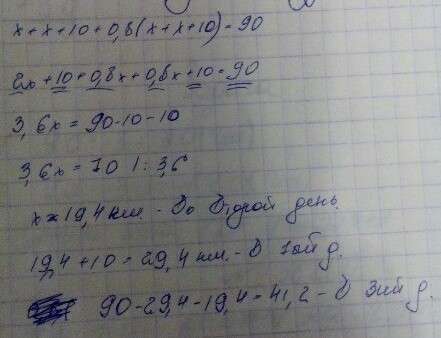 x + x + 10 + 0,8(x + x + 10) = 90
2x + 10 + 0,8x + 0,8x + 10 = 90
3,6x = 90 - 10 - 10
3,6x = 70 | : 3,6
x ≈ 19,4 км. - Во второй день.
19,4 + 10 = 29,4 км. - В 1ый д.
90 - 29,4 - 19,4 = 41,2 - В 3ий д.